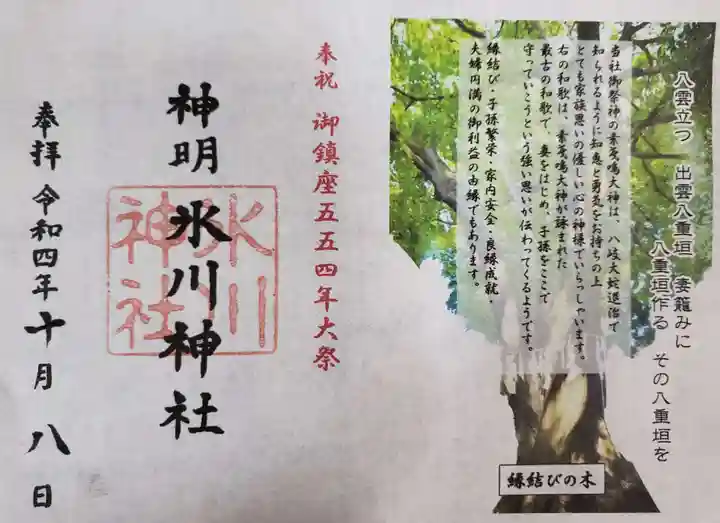 八雲立つ 出雲八重垣 妻籠みに
八重垣作る その八重垣を
当社御祭神の素戔嗚大神は、八岐大蛇退治で
知られるように知恵と勇気をお持ちの上
とても家族思いの優しい心の神様でいらっしゃいます。
右の和歌は、素戔嗚大神が詠まれた
最古の和歌で、妻をはじめ、子孫をここで
守っていこうという強い思いが伝わってくるようです。
縁結び・子孫繁栄・家内安全・良縁成就・
夫婦円満の御利益の由縁でもあります。
縁結びの木
奉祝 御鎮座五五四年大祭
神明氷川神社
氷川
神社
奉拝 令和四年十月八日